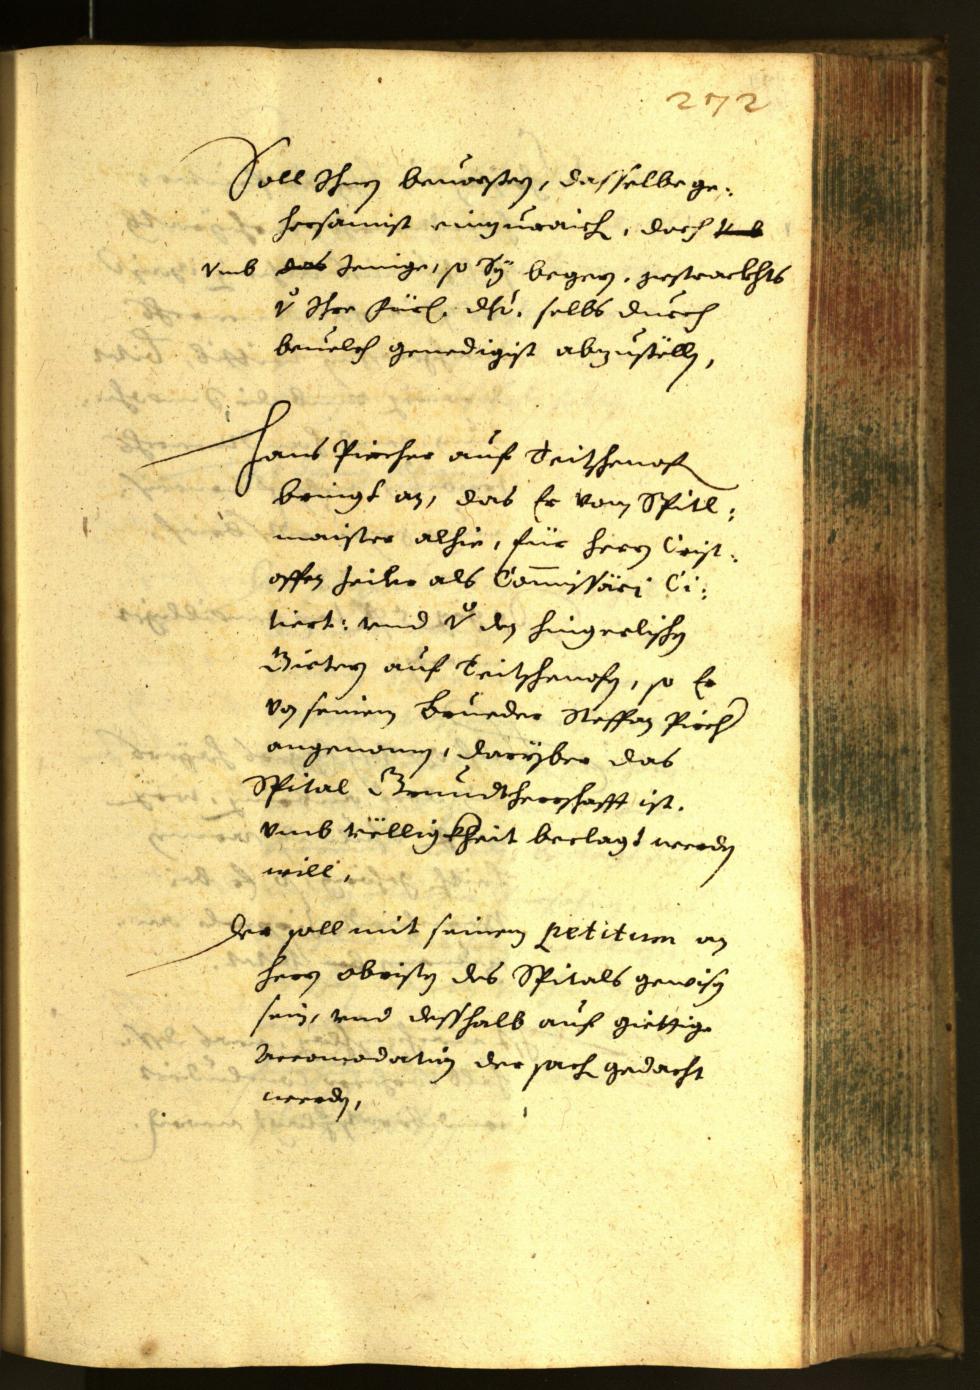 272
Soll Ihnen beuorsten, dasselbe ge:
horsamist einzuraich, doch vmb
vmb das Jenige, so Sÿ begern, gestrackhts
Ihre Fürl. dht. selbs durch
beuelch genedigist abzustölln,
Hans Pircher auf Teitschenofen
bringt an, das Er vom Spitl:
maister alhie, für Herrn Crist:
offen als Commissari Ci:
tiert: vnd den hingerlichen
Pirtern auf Teitschenofn, so Er
von seinem Brueder Steffan Pircher
angenomen, darÿber das
Spital Grundtherrschafft ist.
vmb völligkheit beclagt werden
will,
Der soll mit seinem petitum an
Herrn obristen des Spitals gewisen
sein, vnd desshalb auf giettige
accomodation der sach gedacht
werden,